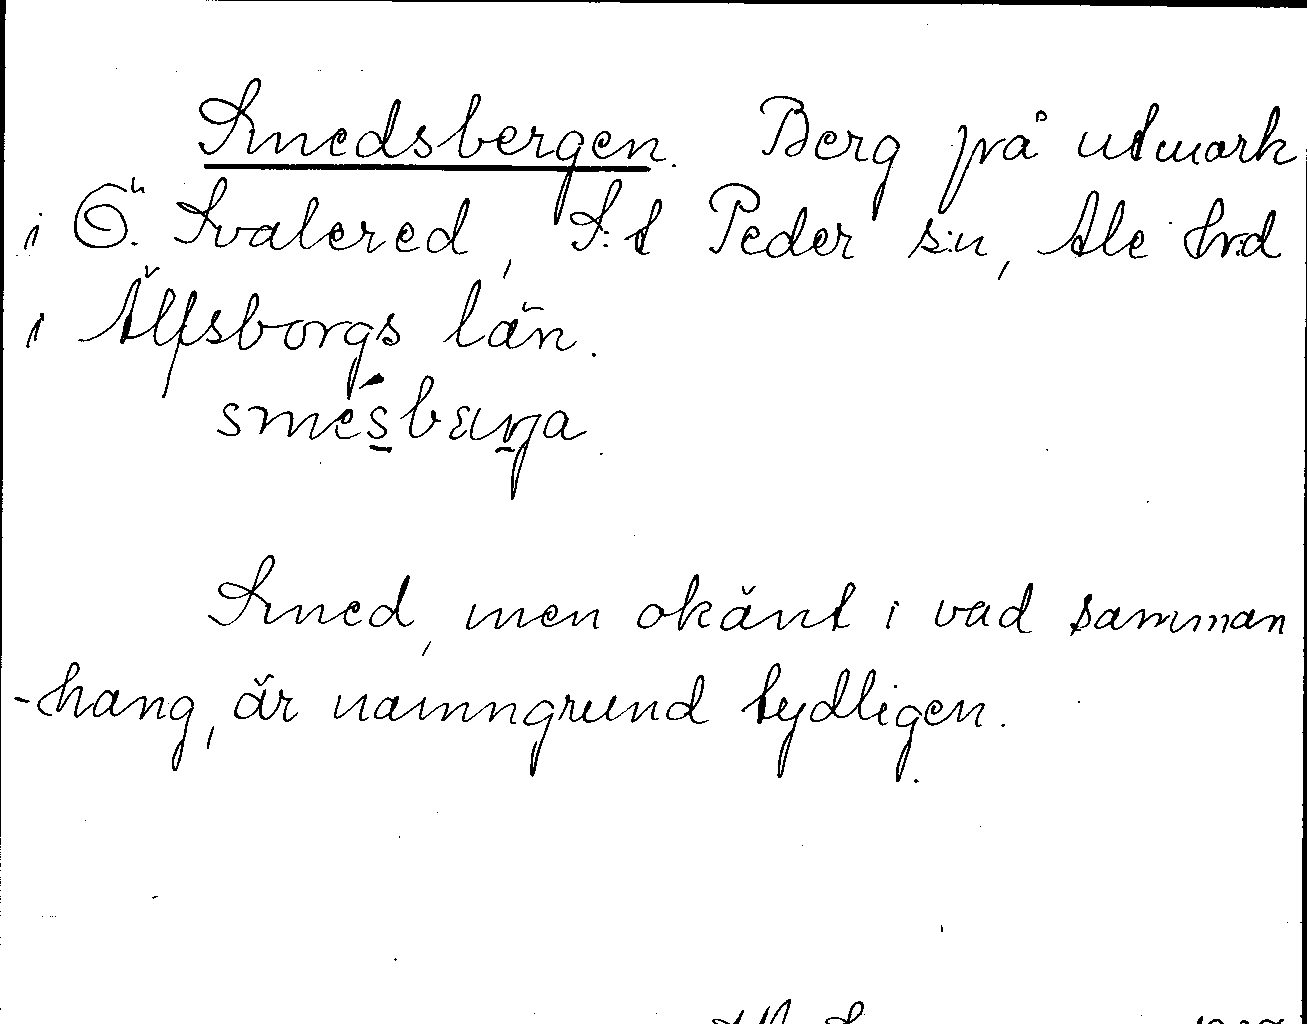 Smedsbergen. Berg på utmark
i Ö. Svalered, S:t Peder s:n, Ale hrd
i Älfsborgs län.
Smed, men okänt i vad samman
-hang, är namngrund tydligen.